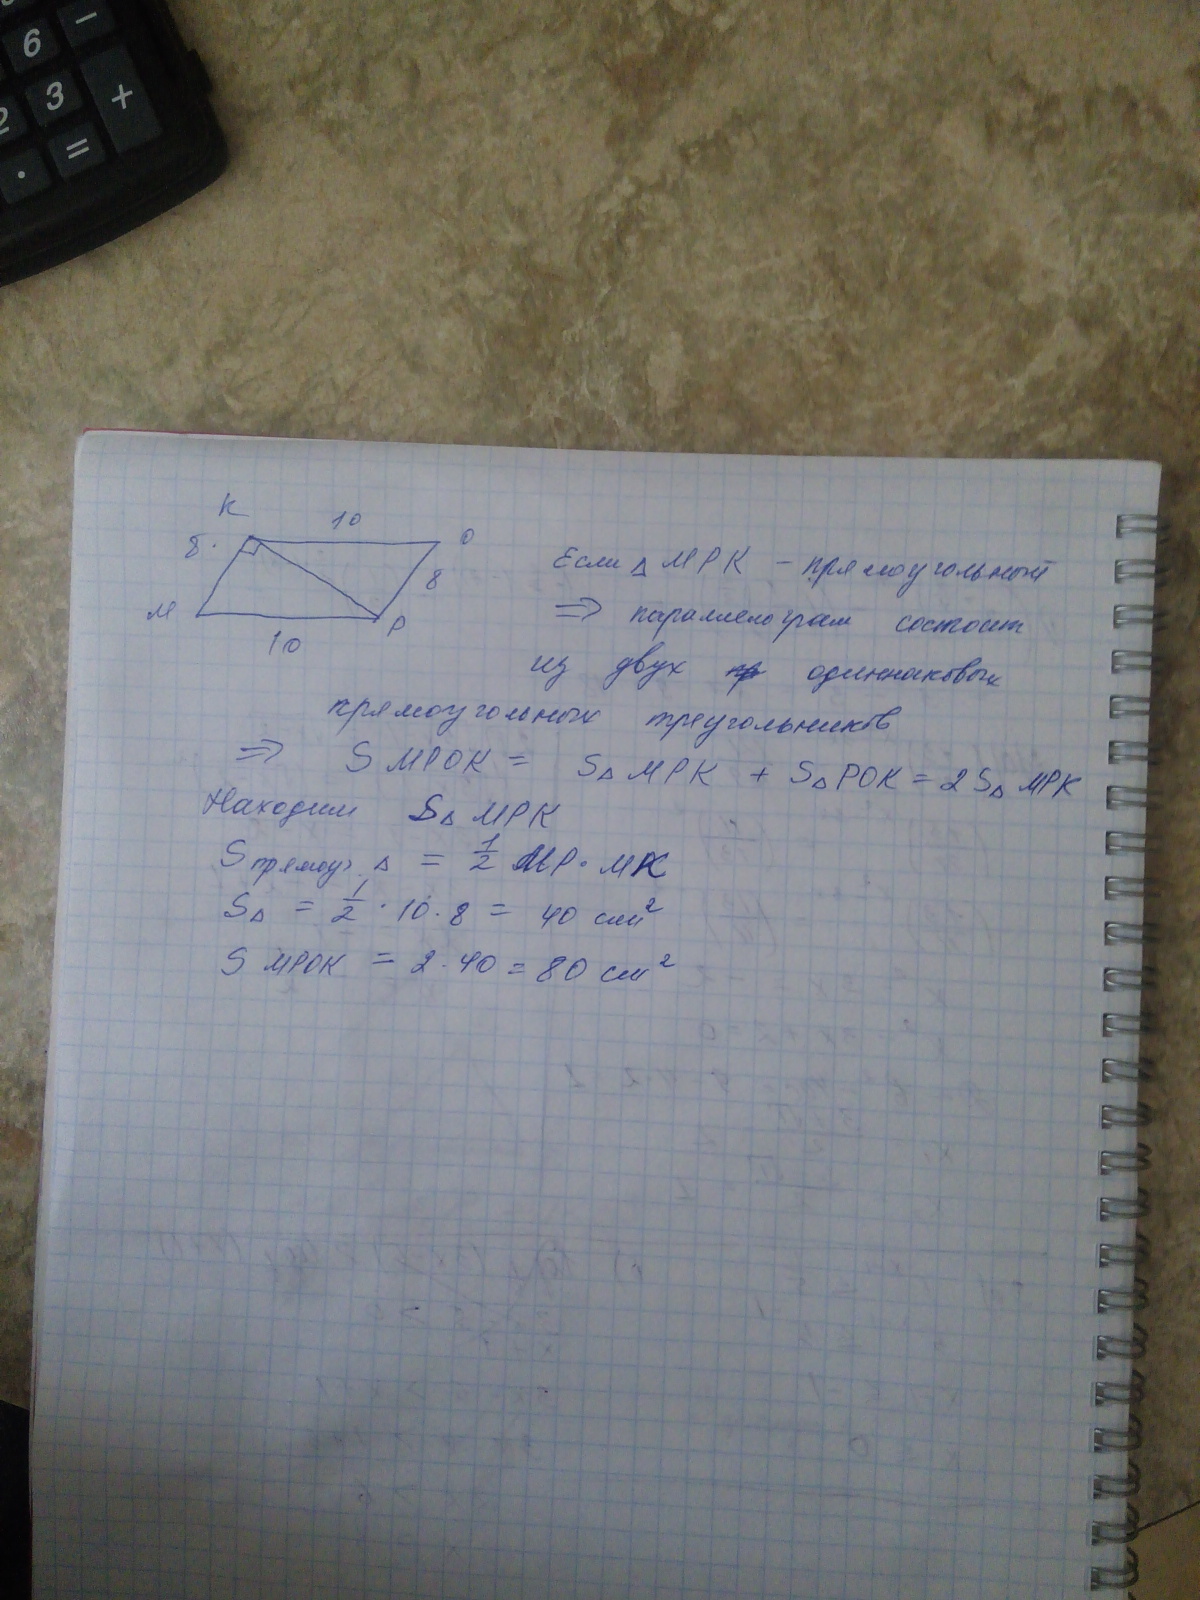 6 −
2 3 +
. =
K 10 O
8.
8
M P
10
Если △ MPK – прямоугольный
⇒ параллелограм состоит
из двух одиннаковых
прямоугольных треугольников
⇒ S MPOK = S△ MPK + S△ POK = 2 S△ MPK
Находим S△ MPK
S прямоуг. △ = 1/2 MP · MK
S△ = 1/2 · 10 · 8 = 40 см²
S MPOK = 2 · 40 = 80 см²